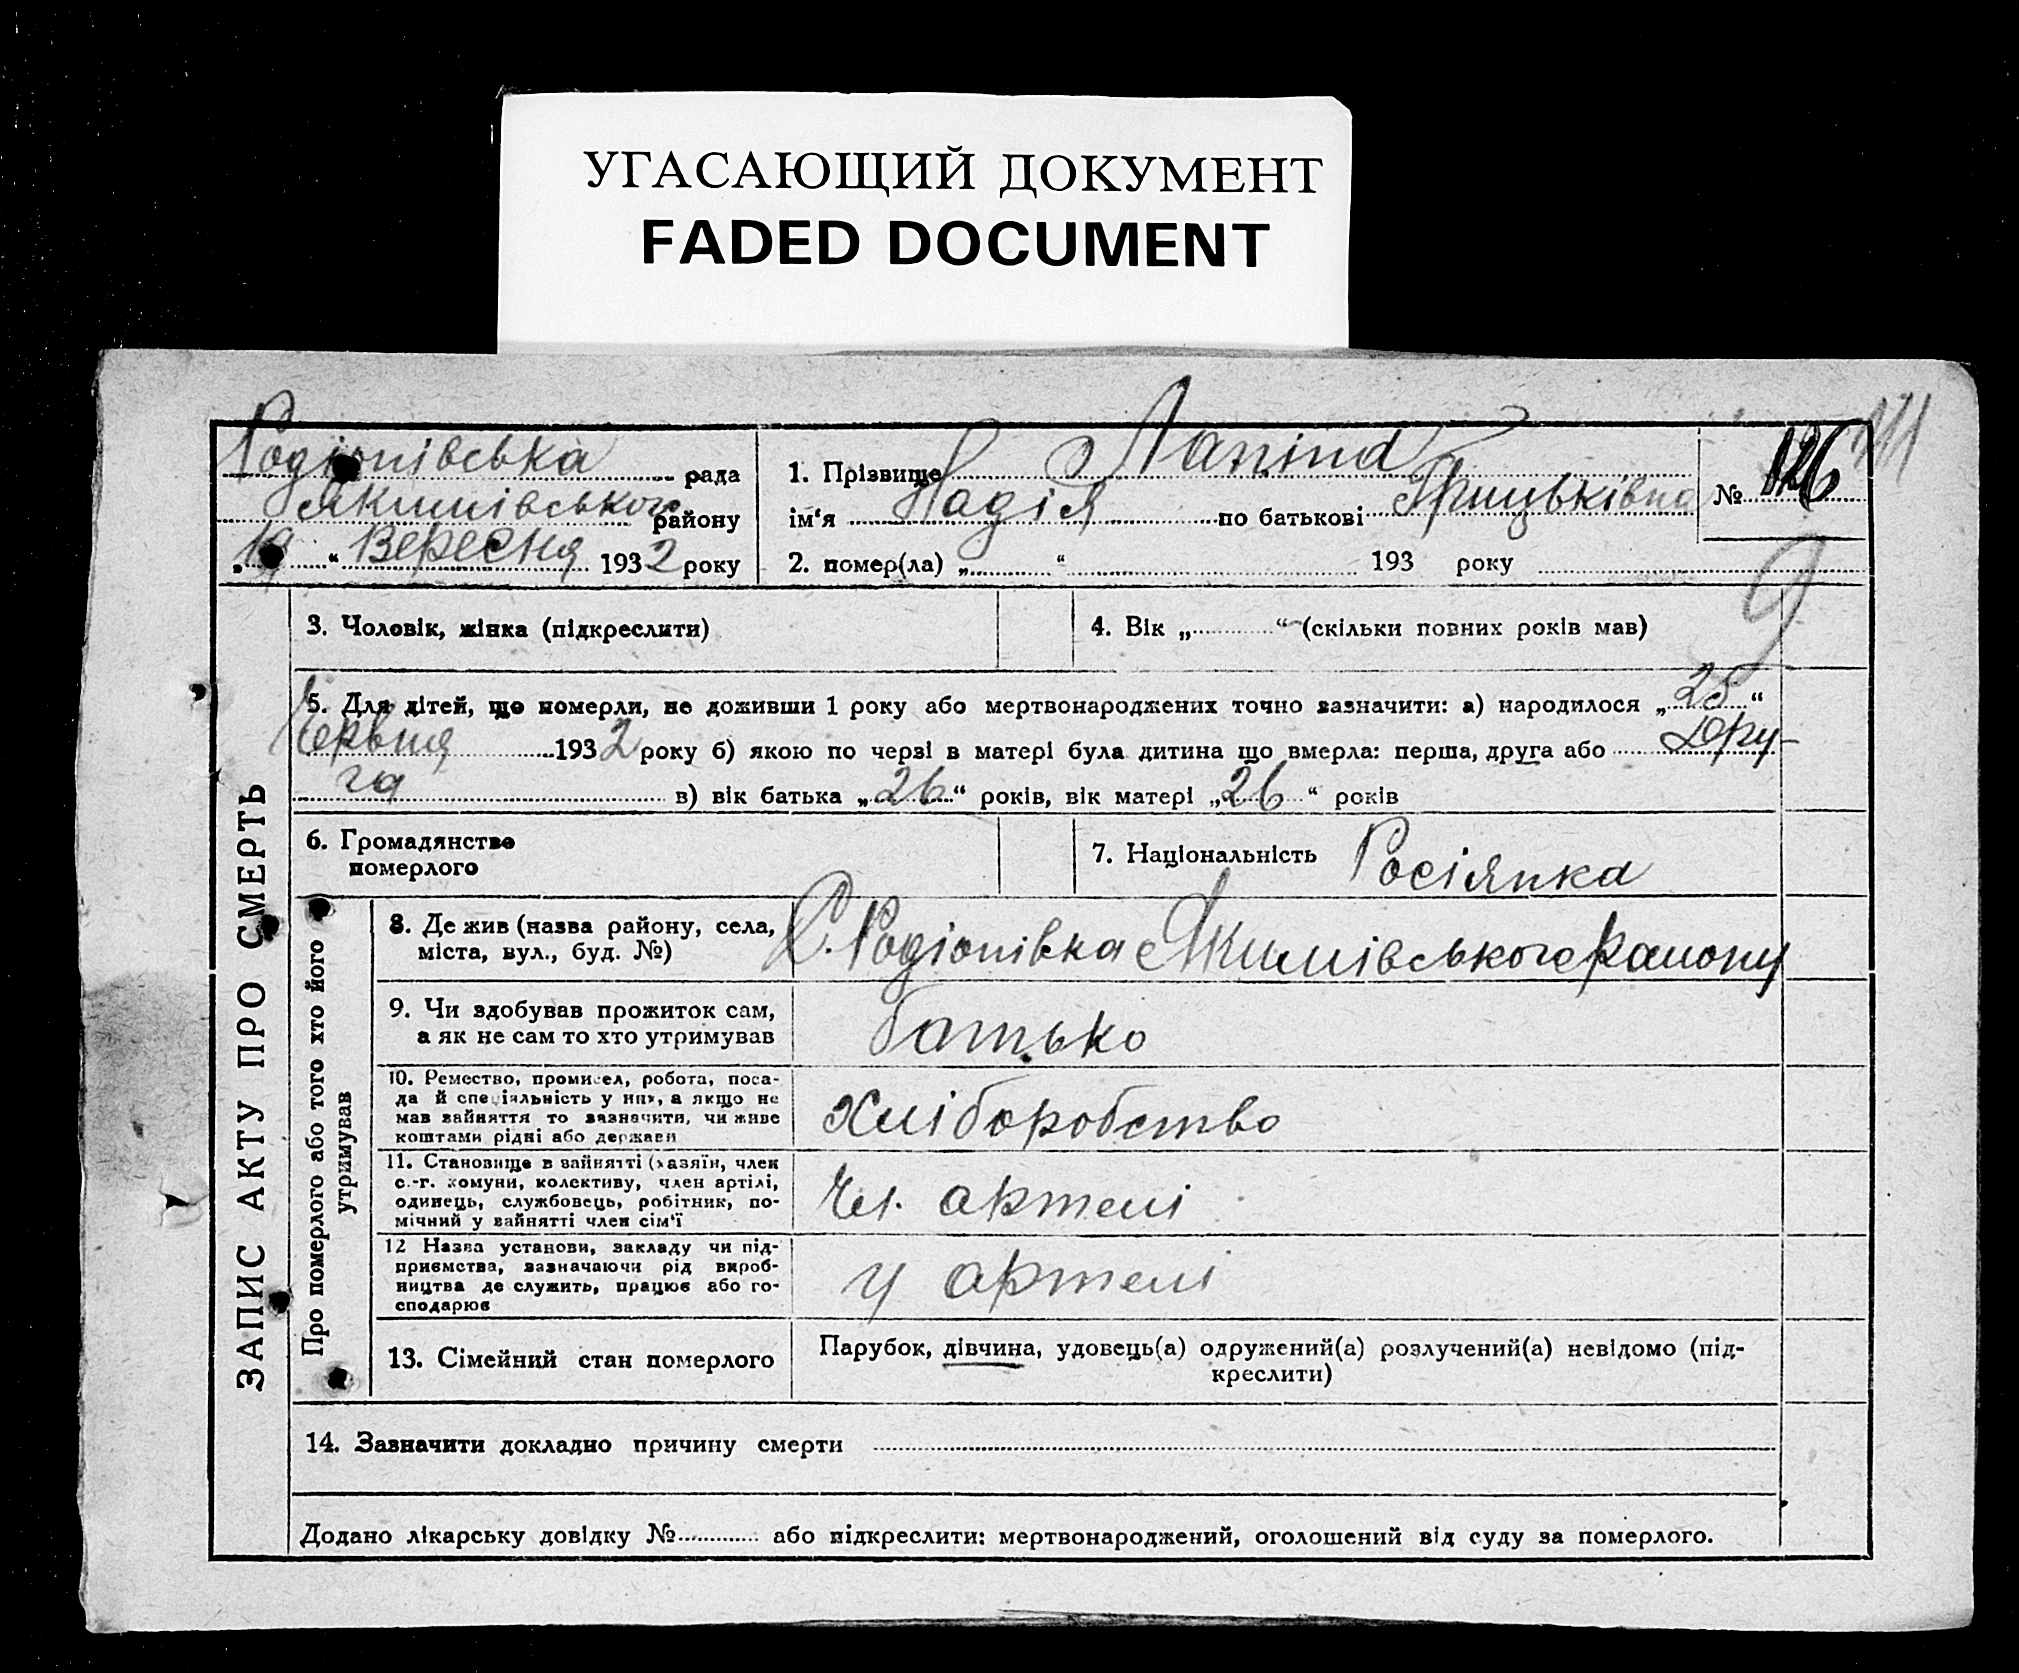 УГАСАЮЩИЙ ДОКУМЕНТ
FADED DOCUMENT
Родіонівська рада
Якимівського району
„19“ Вересня 1932 року
1. Прізвище
ім'я Надія по батькові Грицьківна
2. помер(ла) „ “ 193 року
№ 126
9
ЗАПИС АКТУ ПРО СМЕРТЬ
3. Чоловік, жінка (підкреслити)
4. Вік „ “ (скільки повних років мав)
5. Для дітей, що померли, не доживши 1 року або мертвонароджених точно зазначити: а) народилося „25“
Червня 1932 року б) якою по черзі в матері була дитина що вмерла: перша, друга або Дру-
га в) вік батька „26“ років, вік матері „26“ років
6. Громадянство
померлого
7. Національність Росіянка
Про померлого або того хто його
утримував
8. Де жив (назва району, села,
міста, вул., буд. №)
С. Родіонівка Якимівського району
9. Чи здобував прожиток сам,
а як не сам то хто утримував
батько
10. Ремество, промисел, робота, поса-
да й спеціяльність у них, а якщо не
мав зайняття то зазначити, чи живе
коштами рідні або держави
Хліборобство
11. Становище в зайнятті (хазяїн, член
с.-г. комуни, колективу, член артілі,
одинець, службовець, робітник, по-
мічний у зайнятті член сім'ї
Чл. артелі
12 Назва установи, закладу чи під-
приємства, зазначаючи рід вироб-
ництва де служить, працює або го-
сподарює
у артелі
13. Сімейний стан померлого
Парубок, дівчина, удовець(а) одружений(а) розлучений(а) невідомо (під-
креслити)
14. Зазначити докладно причину смерти
Додано лікарську довідку № або підкреслити: мертвонароджений, оголошений від суду за померлого.